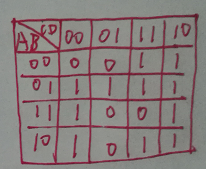 AB CD 00 01 11 10
00 0 0 1 1
01 1 1 1 1
11 1 0 0 1
10 1 0 1 1